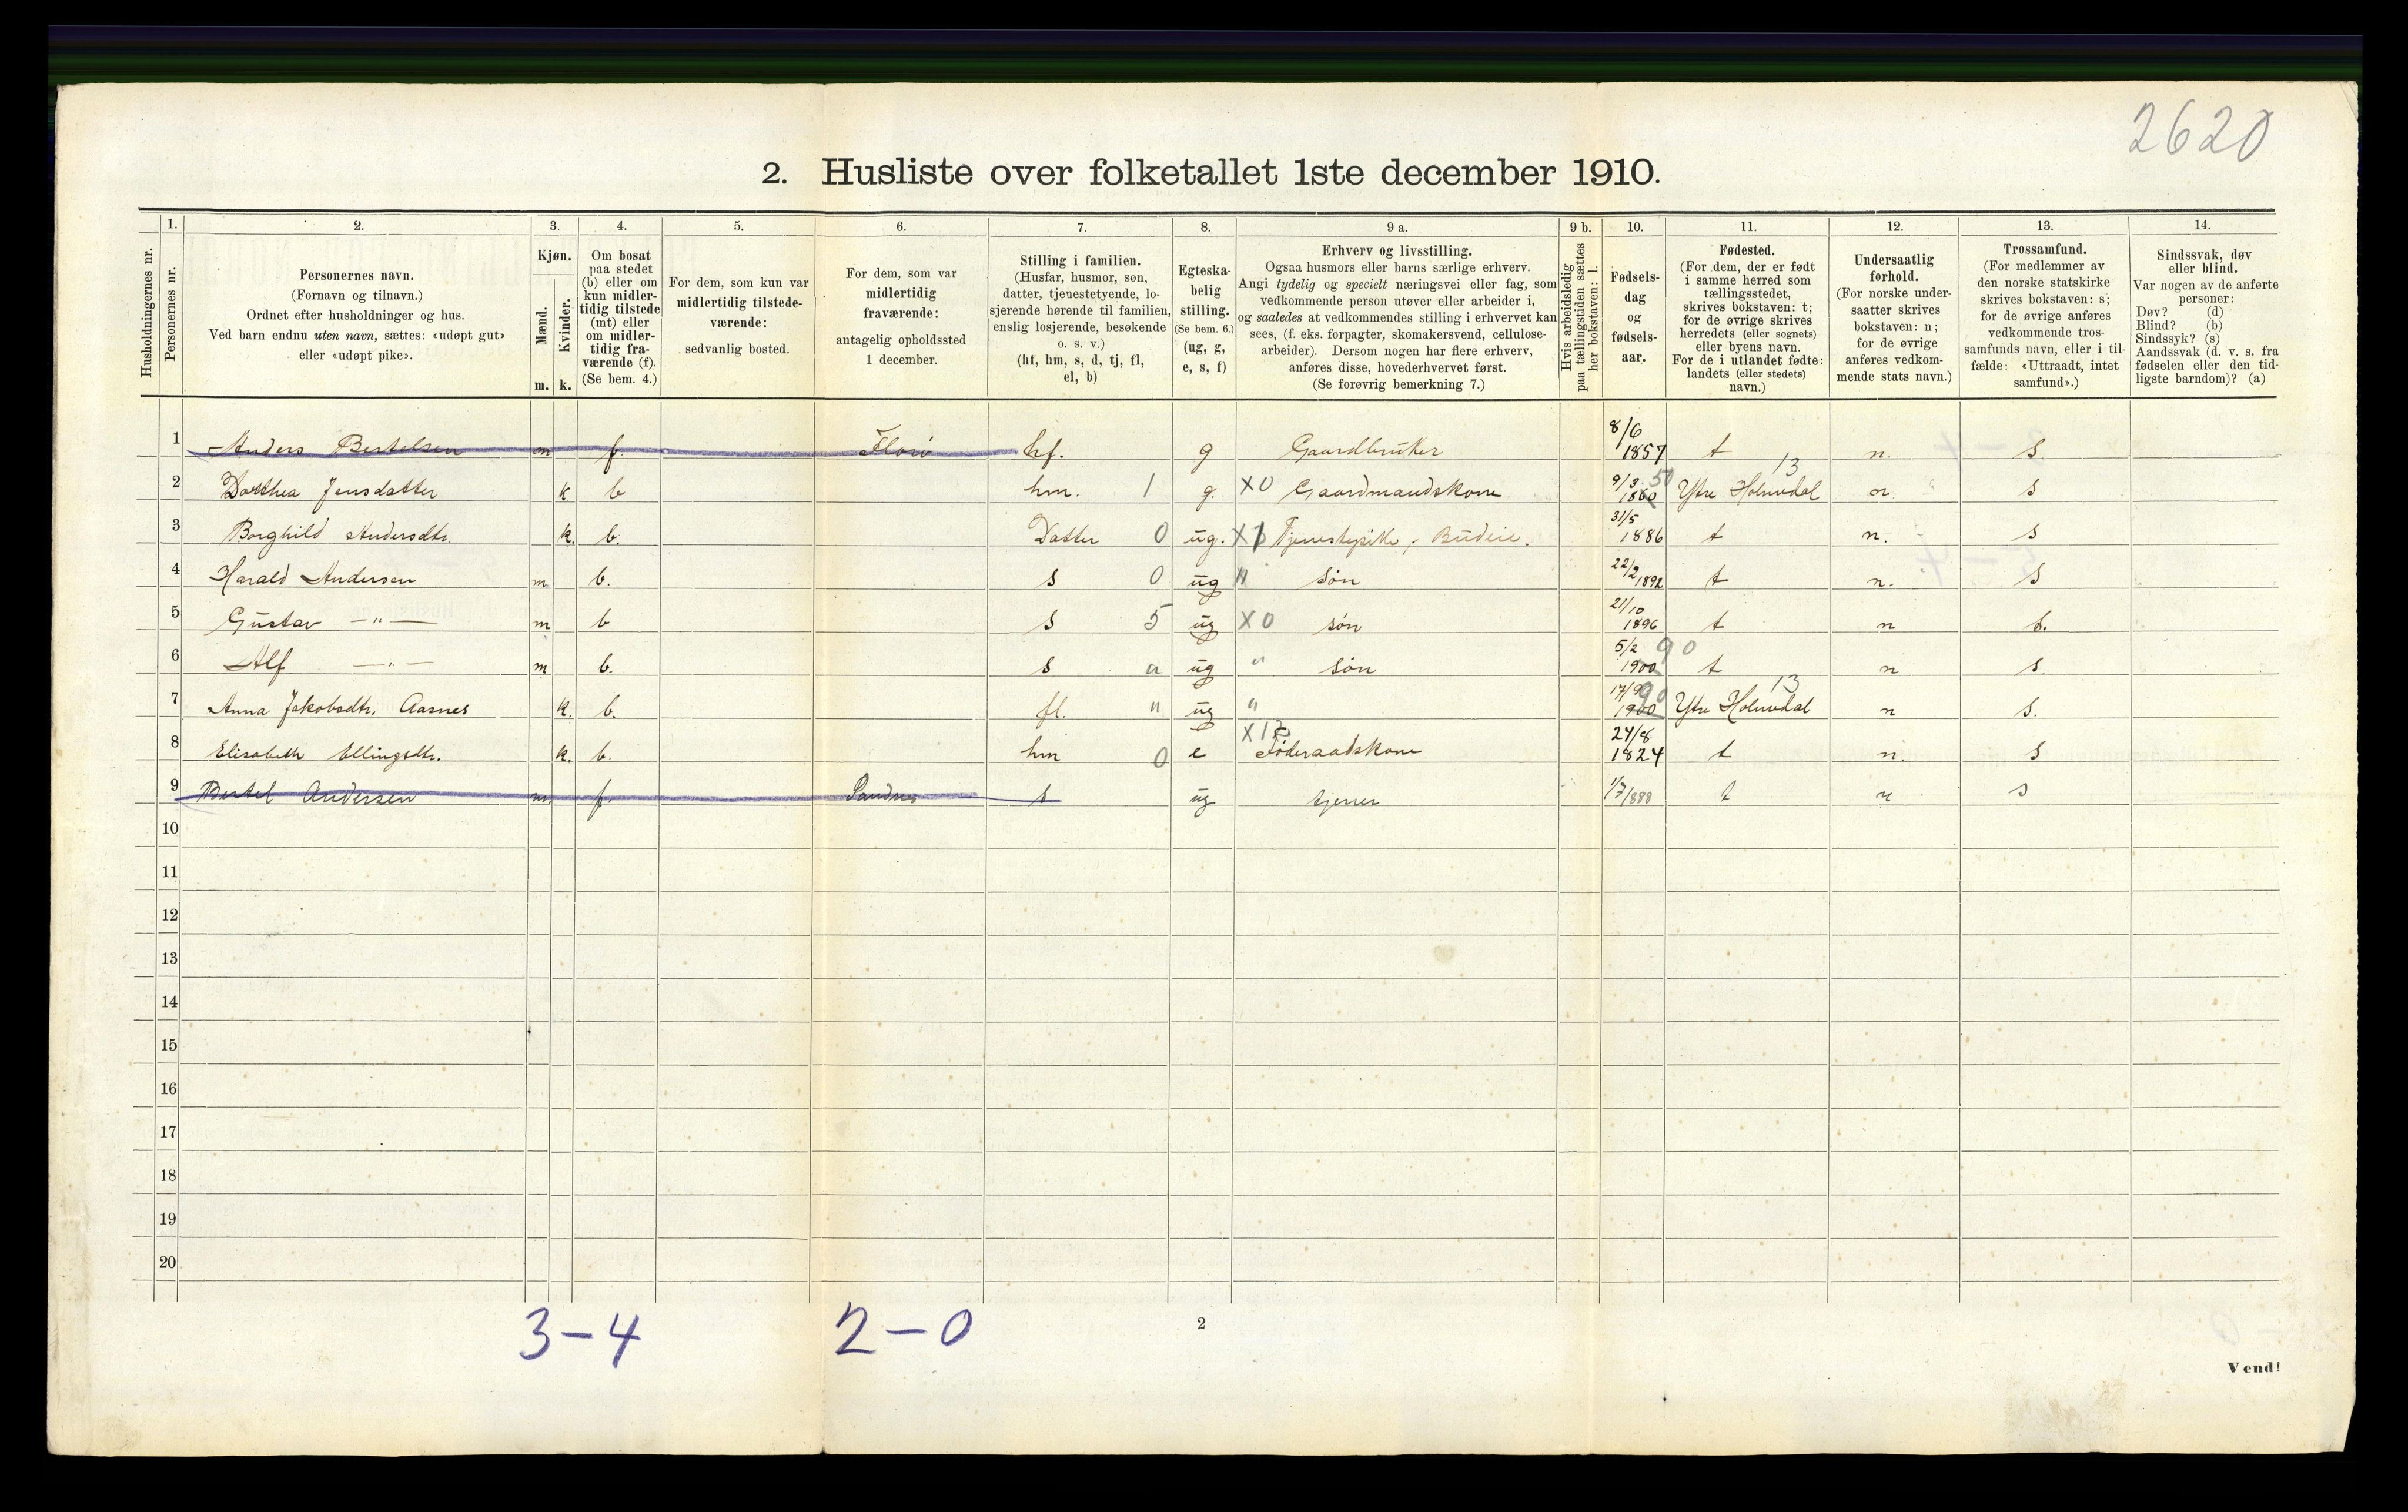 2620
2. Husliste over folketallet 1ste december 1910.
Husholdningernes nr.
1.
Personernes nr.
2.
Personernes navn.
(Fornavn og tilnavn.)
Ordnet efter husholdninger og hus.
Ved barn endnu uten navn, sættes: «udøpt gut»
eller «udøpt pike».
3.
Kjøn.
Mænd.
Kvinder.
m. k.
4.
Om bosat
paa stedet
(b) eller om
kun midler-
tidig tilstede
(mt) eller
om midler-
tidig fra-
værende (f).
(Se bem. 4.)
5.
For dem, som kun var
midlertidig tilstede-
værende:
sedvanlig bosted.
6.
For dem, som var
midlertidig
fraværende:
antagelig opholdssted
1 december.
7.
Stilling i familien.
(Husfar, husmor, søn,
datter, tjenestetyende, lo-
sjerende hørende til familien,
enslig losjerende, besøkende
o. s. v.)
(hf, hm, s, d, tj, fl,
el, b)
8.
Egteska-
belig
stilling.
(Se bem. 6.)
(ug, g,
e, s, f)
9 a.
Erhverv og livsstilling.
Ogsaa husmors eller barns særlige erhverv.
Angi tydelig og specielt næringsvei eller fag, som
vedkommende person utøver eller arbeider i,
og saaledes at vedkommendes stilling i erhvervet kan
sees, (f. eks. forpagter, skomakersvend, cellulose-
arbeider). Dersom nogen har flere erhverv,
anføres disse, hovederhvervet først.
(Se forøvrig bemerkning 7.)
9 b.
Hvis arbeidsledig
paa tællingstiden sættes
her bokstaven: l.
10.
Fødsels-
dag
og
fødsels-
aar.
11.
Fødested.
(For dem, der er født
i samme herred som
tællingsstedet,
skrives bokstaven: t;
for de øvrige skrives
herredets (eller sognets)
eller byens navn.
For de i utlandet fødte:
landets (eller stedets)
navn.)
12.
Undersaatlig
forhold.
(For norske under-
saatter skrives
bokstaven: n;
for de øvrige
anføres vedkom-
mende stats navn.)
13.
Trossamfund.
(For medlemmer av
den norske statskirke
skrives bokstaven: s;
for de øvrige anføres
vedkommende tros-
samfunds navn, eller i til-
fælde: «Uttraadt, intet
samfund».)
14.
Sindssvak, døv
eller blind.
Var nogen av de anførte
personer:
Døv? (d)
Blind? (b)
Sindssyk? (s)
Aandssvak (d. v. s. fra
fødselen eller den tid-
ligste barndom)? (a)
1 Anders Bertelsen m f Florø hf. g Gaardbruker 8/6 1857 t n. s
2 Dorthea Jensdatter k b hm. 1 g. X0 Gaardmandskone 9/3 1860 50 Ytre Holmedal 13 n s
3 Borghild Andersdtr. k. b. Datter 0 ug. X Tjenestepike, Budeie. 31/5 1886 t n. s
4 Harald Andersen m b. s 0 ug " søn 22/2 1892 t n. s
5 Gustav —"— m b s 5 ug X0 søn 21/10 1896 t n s.
6 Alf —"— m b. s " ug " søn 5/2 1900 90 t n s.
7 Anna Jakobsdtr. Aasnes k. b. fl. " ug " 17/9 1900 90 Ytre Holmedal 13 n s.
8 Elisabeth Ellingsdtr. k. b. hm 0 e Føderaadskone 24/8 1824 t n. s
9 Bertel Andersen m f Sandnes s ug tjener 1/7 1888 t n s
10
11
12
13
14
15
16
17
18
19
20
3 – 4 2 – 0
2
Vend!